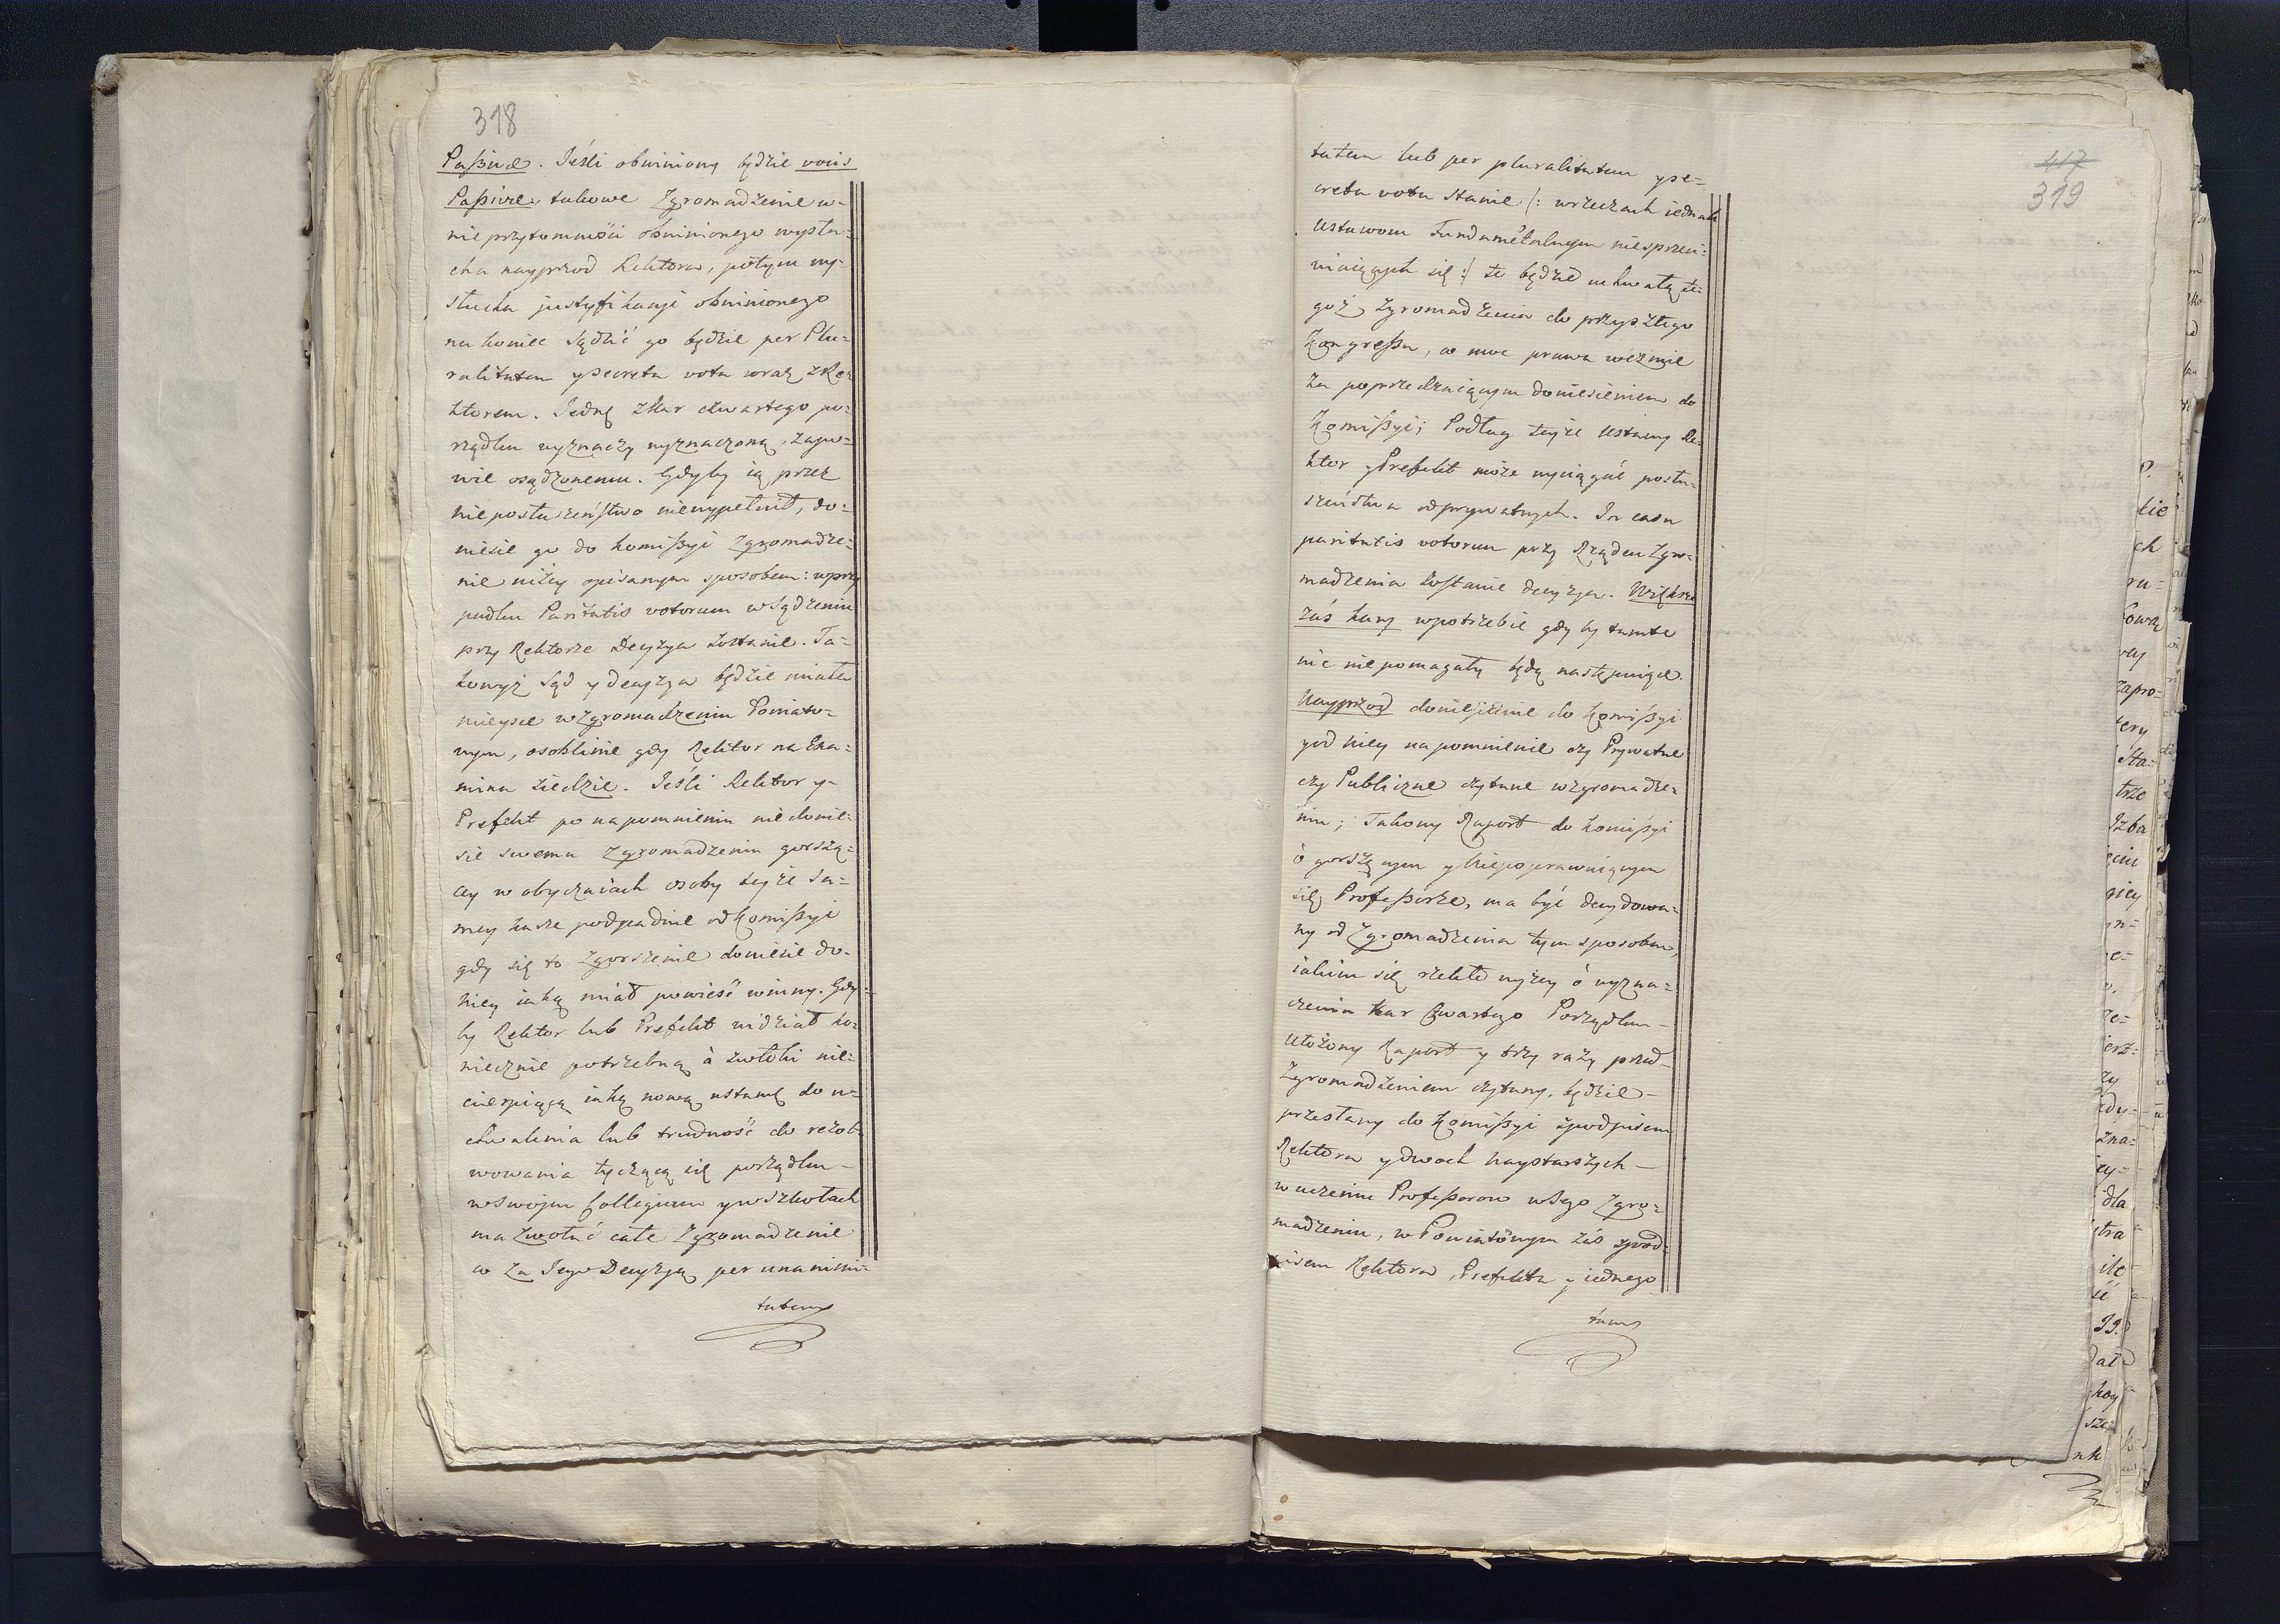 318
Passivæ. Jeśli obwiniony będzie vocis
Passivæ, takowe Zgromadzenie w-
nieprzytomności obwinionego wysłu-
cha nayprzod Rektora, potym wy-
słucha justyfikacyi obwinionego
na koniec sądzić go będzie per Plu-
ralitatem y secreta vota wraz z Re-
ktorem. Jednę z kar czwartego po-
rządku wyznaczy wyznaczoną, zapo-
wie osądzonemu. Gdyby ią przez
nieposłuszeństwo niewypełnił, do-
niesie go do Komissyi Zgromadze-
nie niżey opisanym sposobem: w przy
padku Paritatis votorum w Sądzeniu
przy Rektorze Decyzya zostanie. Ta-
kowyż Sąd y decyzya będzie miała
mieysce w zgromadzeniu Powiato-
wym, osobliwie gdy Rektor na Exa-
mina ziedzie. Jeśli Rektor y-
Prefekt po napomnieniu nie donie-
sie swemu Zgromadzeniu gorszą-
cey w obyczaiach osoby teyże sa-
mey karze podpadnie od Komissyi
gdy się to Zgorszenie doniesie do-
niey iaką miał powieść winny. Gdy-
by Rektor lub Prefekt widział ko-
niecznie potrzebną à zwłoki nie-
cierpiącą iaką nową ustawę do u-
chwalenia lub trudność do rezol-
wowania tyczącą się porządku-
w swoim Collegium y w Szkołach
ma zwołać całe Zgromadzenie
co za Jego Decyzyą per unanimi-
tatem
417
319
tatem lub per pluralitatem y se-
creta vota stanie /: w rzeczach iednak
Ustawom Fundamẽtalnym niesprzeci-
wiaiących się :/ to będzie uchwałą te-
goż Zgromadzenia do przyszłego
Kongressu, a moc prawa weźmie
za poprzedzaiącym doniesieniem do
Komissyi; Podług teyże Ustawy Re-
ktor y Prefekt może wyciągać posłu-
szeństwa od prywatnych. In casu
paritatis votorum przy Rządcu Zgro-
madzenia zostanie decyzya. Większe
zaś kary w potrzebie gdyby tamte
nic nie pomagały będą następuiące.
Nayprzod doniesienie do Komissyi
y od niey napomnienie czy Prywatne
czy Publiczne czytane w zgromadze-
niu; Takowy Raport do Komissyi
ò gorszącym y niepoprawuiącym
się Professorze, ma być decydowa-
ny od Zgromadzenia tym sposobem,
iakim się rzekło wyżey ò wyzna-
czeniu kar Czwartego Porządku-
Ułożony Raport y trzy razy przed-
Zgromadzeniem czytany, będzie-
przesłany do Komissyi z podpisem
Rektora y dwoch naystarszych-
w uczeniu Professorow w Jego Zgro-
madzeniu, w Powiatowym zaś z pod-
pisem Rektora, Prefekta y iednego